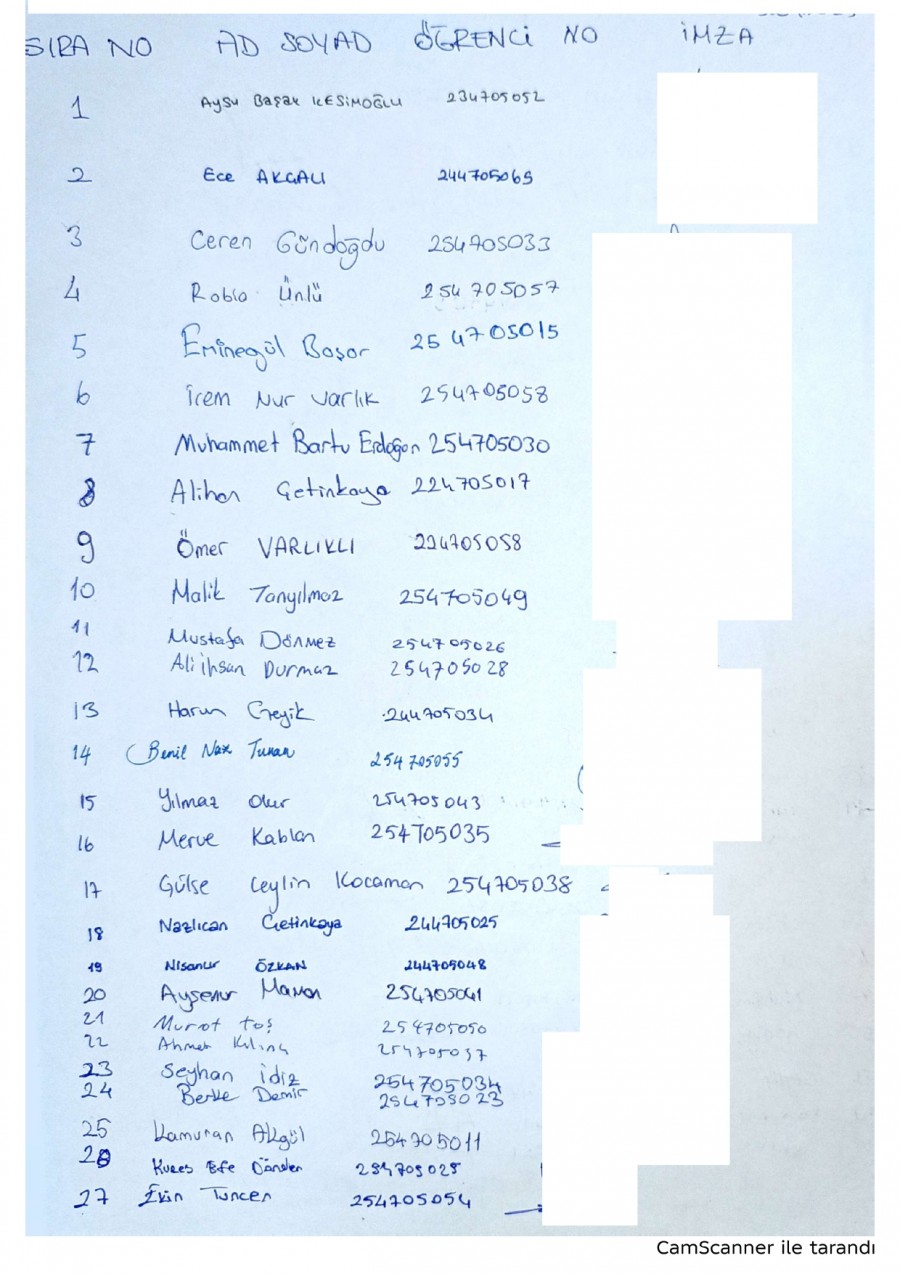 SIRA NO AD SOYAD ÖĞRENCİ NO İMZA
1 Aysu Başak KESİMOĞLU 234705052
2 Ece AKCALI 244705069
3 Ceren Gündoğdu 254705033
4 Rabia Ünlü 254705057
5 Eminegül Başar 254705015
6 İrem Nur Varlık 254705058
7 Muhammet Bartu Erdoğan 254705030
8 Alihan Çetinkaya 224705017
9 Ömer VARLIKLI 224705058
10 Malik Tanyılmaz 254705049
11 Mustafa Dönmez 254705026
12 Ali ihsan Durmaz 254705028
13 Harun Geyik 244705034
14 Tunan 254705055
15 Yılmaz Olur 254705043
16 Merve Kablan 254705035
17 Gülse Ceylin Kocaman 254705038
18 Nazlıcan Çetinkaya 244705025
19 Nisanur ÖZKAN 244705048
20 Ayşenur Maman 254705041
21 Murat taş 254705050
22 Ahmet Kılınç
23 Seyhan İdiz 254705034
24 Berke Demir 254705023
25 Kamuran Akgül 254705011
26 Efe
27 Tuncer 254705054
CamScanner ile tarandı